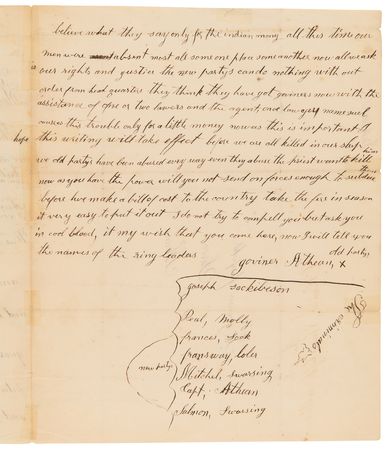 believe what they say only for the indian, money all this time our
men were absent most all some one place some another now all we ask
is our rights and gustice the new partys can do nothing with out
order from head quarters they think they have got goviners now with the
assistance of one or two lawers and the agent, one lawyers name such
causes this trouble only for a little money now as this is important I
hope this writing will take effect before we are all killed in our sleep
we old partys have been abused evry way even they abuse the priest want to kill him
now as you have the power will you not send on forces enough to subdue them
before we make a bill of cost to the country take the fire in season
it very easy to put it out I do not try to compell you but ask you
in cool blood, it my wish that you come here, now I will tell you
the names of the ring leaders
old party
goviner Athean, x
joseph sockibeson
Peal, Molly
frances, Sook
fransway, Loler
Mitchel, swassing
Capt, Athean
Salmon, swassing
new party
The criminals